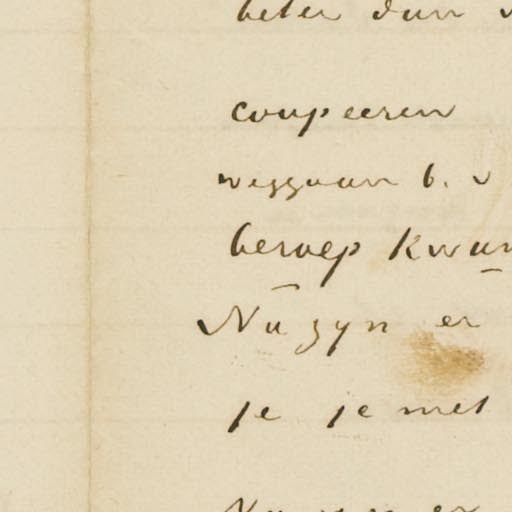 beter dan
coupeeren
weggaan b. v
beroep kwam
Nu zyn er
je je met